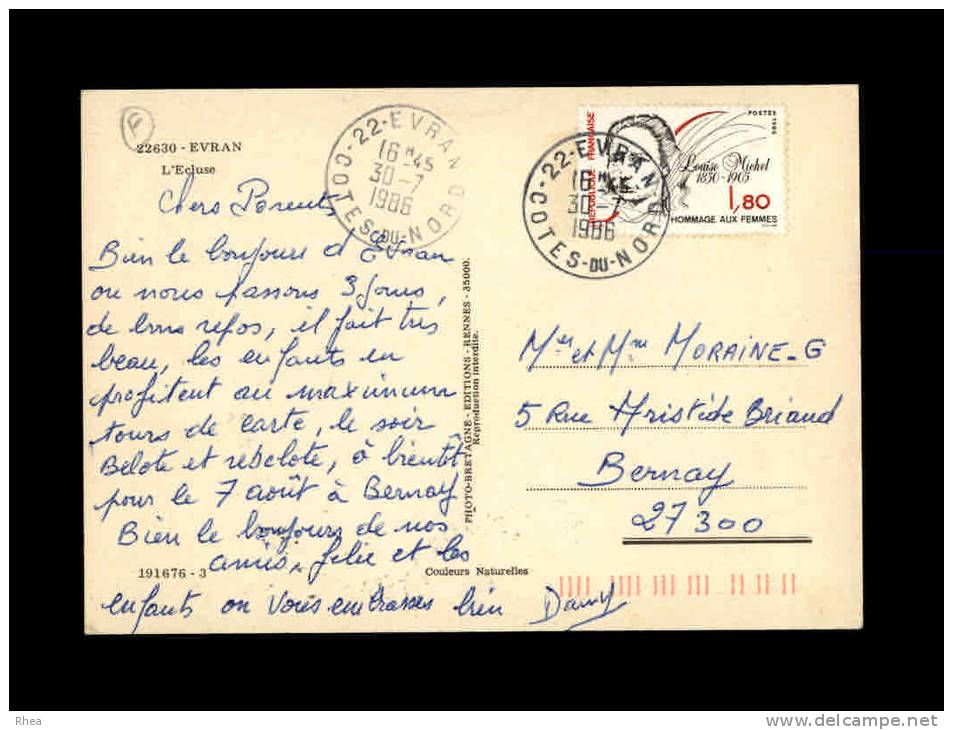 F
22630 - EVRAN
L'Ecluse
22-EVRAN
16 H 45
30-7
1986
COTES-DU-NORD
22-EVRAN
16 H 45
30-7
1986
COTES-DU-NORD
REPUBLIQUE FRANÇAISE
POSTES 1986
Louise Michel
1830-1905
1,80
HOMMAGE AUX FEMMES
Chers Parents,
Bien le bonjours d'Evran
ou nous passons 3 jours,
de bons repos, il fait très
beau, les enfants en
profitent au maximum
tours de carte, le soir
Belote et rebelote, à bientôt
pour le 7 août à Bernay
Bien le bonjours de nos
amis, et les
enfants on vous embrasses bien
PHOTO-BRETAGNE - EDITIONS - RENNES - 35000.
Reproduction interdite.
191676 - 3
Couleurs Naturelles
Mr et Mme MORAINE-G
5 Rue Aristide Briand
Bernay
27300
Rhea
www.delcampe.net